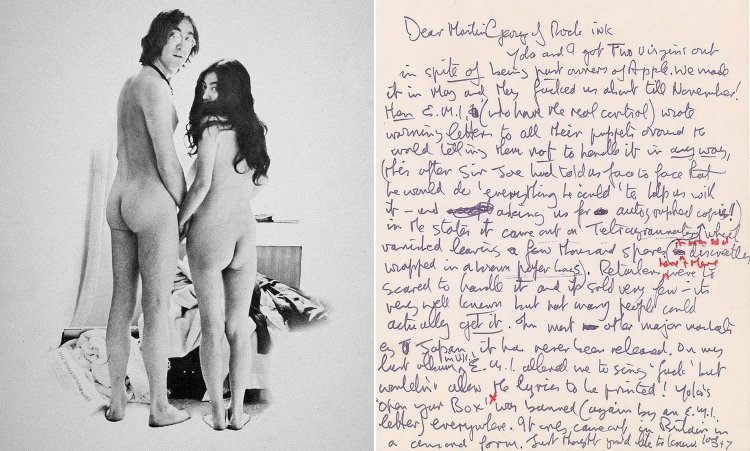 Dear Martin George of Rock ink
Yoko and I got Two Virgins out
in spite of being part owners of Apple. We made
it in May and they fucked us about till November!
Then E.M.I. (who have the real control) wrote
warning letters to all their puppets around the
world telling them not to handle it in any way,
(this after Sir Joe had told us face to face that
he would do 'everything he could' to help us with
it – and asking us for autographed copies!)
in the states it came out on Tetragrammaton which
vanished leaving a few thousand spare (it was sold discreetly
wrapped in a brown paper bag). Retailers here & there were to
scared to handle it and it sold very few – its
very well known but not many people could
actually get it. In most other major markets
eg Japan, it has never been released. On my
last album in U.K. E.M.I allowed me to sing 'fuck' but
wouldn't allow the lyrics to be printed! Yoko's
'Open your Box' was banned (again by an E.M.I.
letter) everywhere. It only came out in Britain in
a censored form. Just thought you'd like to know love